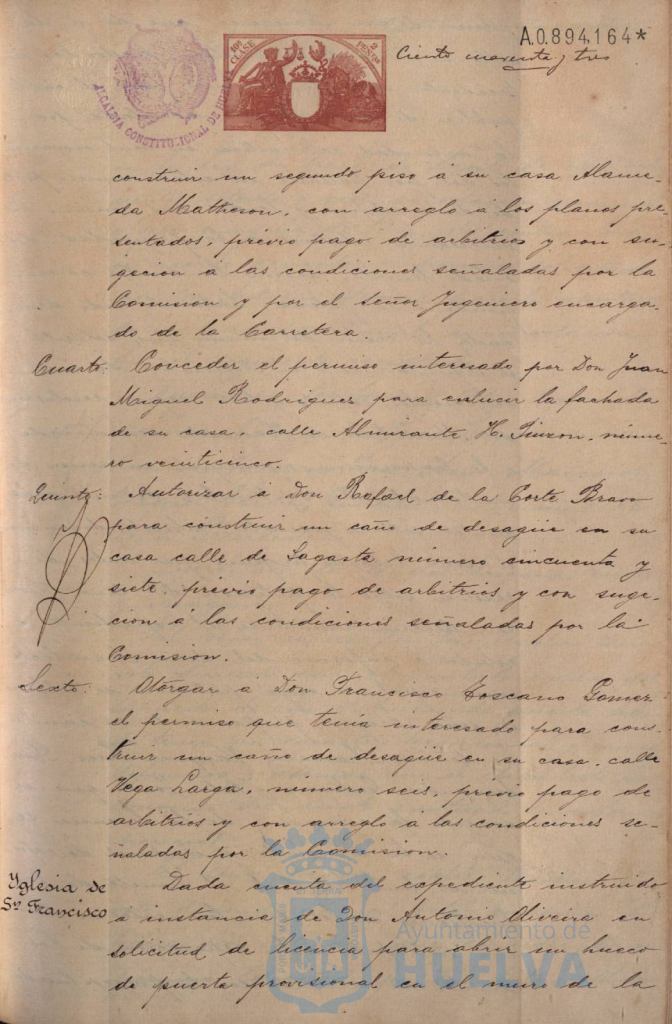 A.0.894.164*
Ciento noventa y tres
10ª CLASE
2 PESETAS
ALCALDIA CONSTITUCIONAL DE HUELVA
construir un segundo piso á su casa Alame-
da Matheson, con arreglo á los planos pre-
sentados, prévio pago de arbitrios y con su-
gecion á las condiciones señaladas por la
Comision y por el Señor Ingeniero encarga-
do de la Carretera.
Cuarto: Conceder el permiso interesado por Don Juan
Miguel Rodriguez para enlucir la fachada
de su casa, calle Almirante H. Pinzon, núme-
ro veinticinco.
Quinto: Autorizar á Don Rafael de la Corte Bravo
para construir un caño de desagüe en su
casa calle de Sagasta número cincuenta y
siete, prévio pago de arbitrios y con suge-
cion á las condiciones señaladas por la
Comision.
Sexto: Otorgar á Don Francisco Toscano Gomez
el permiso que tenía interesado para cons-
truir un caño de desagüe en su casa, calle
Vega Larga, número seis, prévio pago de
arbitrios y con arreglo á las condiciones se-
ñaladas por la Comision.
Yglesia de
Sn Francisco
Dada cuenta del expediente instruido
á instancia de Don Antonio Oliveira en
solicitud de licencia para abrir un hueco
de puerta provisional en el muro de la
Ayuntamiento de
HUELVA